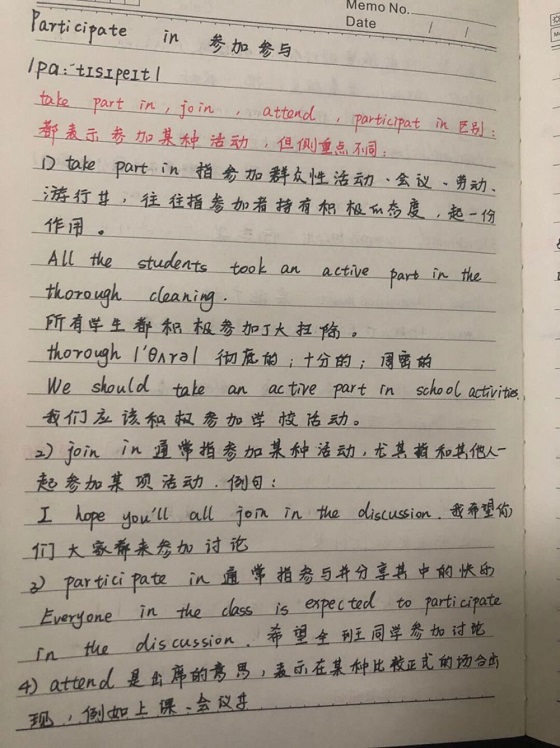 Memo No.
Date / /
Participate in 参加参与
/pa:ˈtɪsɪpeɪt/
take part in, join, attend, participat in 区别:
都表示参加某种活动,但侧重点不同:
1) take part in 指参加群众性活动、会议、劳动、
游行等,往往指参加者持有积极的态度,起一份
作用。
All the students took an active part in the
thorough cleaning.
所有学生都积极参加了大扫除。
thorough /ˈθʌrə/ 彻底的;十分的;周密的
We should take an active part in school activities.
我们应该积极参加学校活动。
2) join in 通常指参加某种活动,尤其指和其他人一
起参加某项活动.例句:
I hope you'll all join in the discussion. 我希望你
们大家都来参加讨论
3) participate in 通常指参与并分享其中的快的
Everyone in the class is expected to participate
in the discussion. 希望全班同学参加讨论
4) attend 是出席的意思,表示在某种比较正式的场合出
现,例如上课、会议等